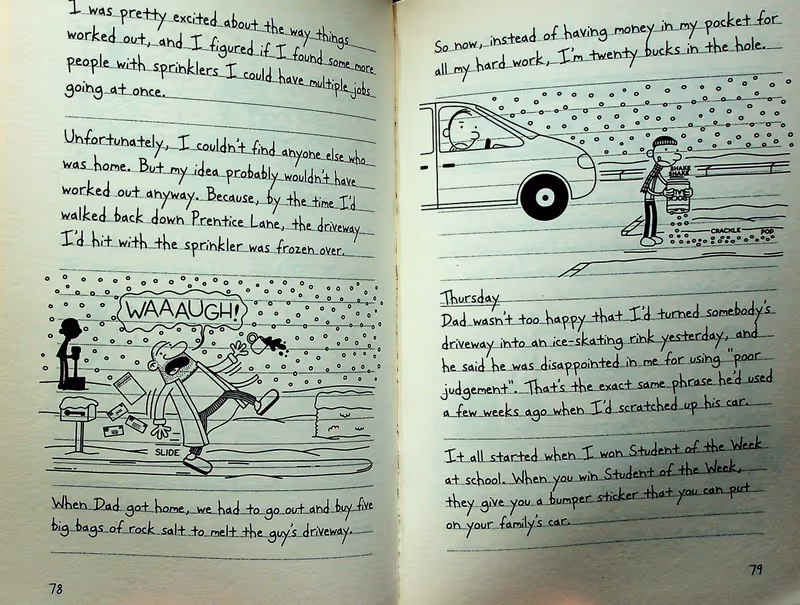 I was pretty excited about the way things
worked out, and I figured if I found some more
people with sprinklers I could have multiple jobs
going at once.
Unfortunately, I couldn't find anyone else who
was home. But my idea probably wouldn't have
worked out anyway. Because, by the time I'd
walked back down Prentice Lane, the driveway
I'd hit with the sprinkler was frozen over.
WAAAUGH!
SLIDE
When Dad got home, we had to go out and buy five
big bags of rock salt to melt the guy's driveway.
78
So now, instead of having money in my pocket for
all my hard work, I'm twenty bucks in the hole.
SHAKE
SHAKE
CRACKLE
POP
Thursday
Dad wasn't too happy that I'd turned somebody's
driveway into an ice-skating rink yesterday, and
he said he was disappointed in me for using "poor
judgement". That's the exact same phrase he'd used
a few weeks ago when I'd scratched up his car.
It all started when I won Student of the Week
at school. When you win Student of the Week,
they give you a bumper sticker that you can put
on your family's car.
79